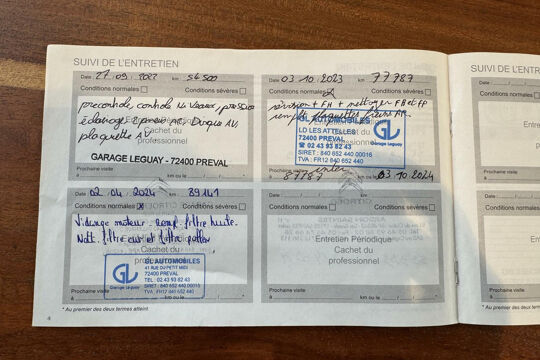 SUIVI DE L'ENTRETIEN
Date 27 . 09 . km 54 500
Conditions normales Conditions sévères
précontrole, controle
éclairage AR, Disque AV,
plaquette AV
Cachet du
professionnel
GARAGE LEGUAY - 72400 PREVAL
Prochaine visite
à km ou le
Date 03 10 . 2023 km 77787
Conditions normales Conditions sévères
révision + FH + nettoyage FH et FP
plaquettes freins AR
GL AUTOMOBILES
LD LES ATTELLES
72400 PREVAL
02 43 93 82 43
SIRET : 840 652 440 00016
TVA : FR12 840 652 440
GL
Garage Leguay
Cachet du
professionnel
Prochaine visite
à 87787 km ou le 03 10 2024
Date 02 . 04 . 2024 km 89141
Conditions normales Conditions sévères
Vidange moteur. remp. filtre huile.
Nett. filtre air et filtre pollen
GL
Garage Leguay
GL AUTOMOBILES
41 RUE DU PETIT MIDI
72400 PREVAL
TEL : 02 43 93 82 43
SIRET : 840 652 440 00015
TVA : FR12 840 652 440
Prochaine visite
à km ou le
Date km
Conditions normales Conditions sévères
Entretien Périodique
Cachet du
professionnel
Prochaine visite
à km ou le
4
* Au premier des deux termes atteint.
SUIVI DE L'ENTRET
Date
Conditions normales
Prochaine visite
à
Date
Conditions normales
Prochaine visite
à
* Au premier des deux termes